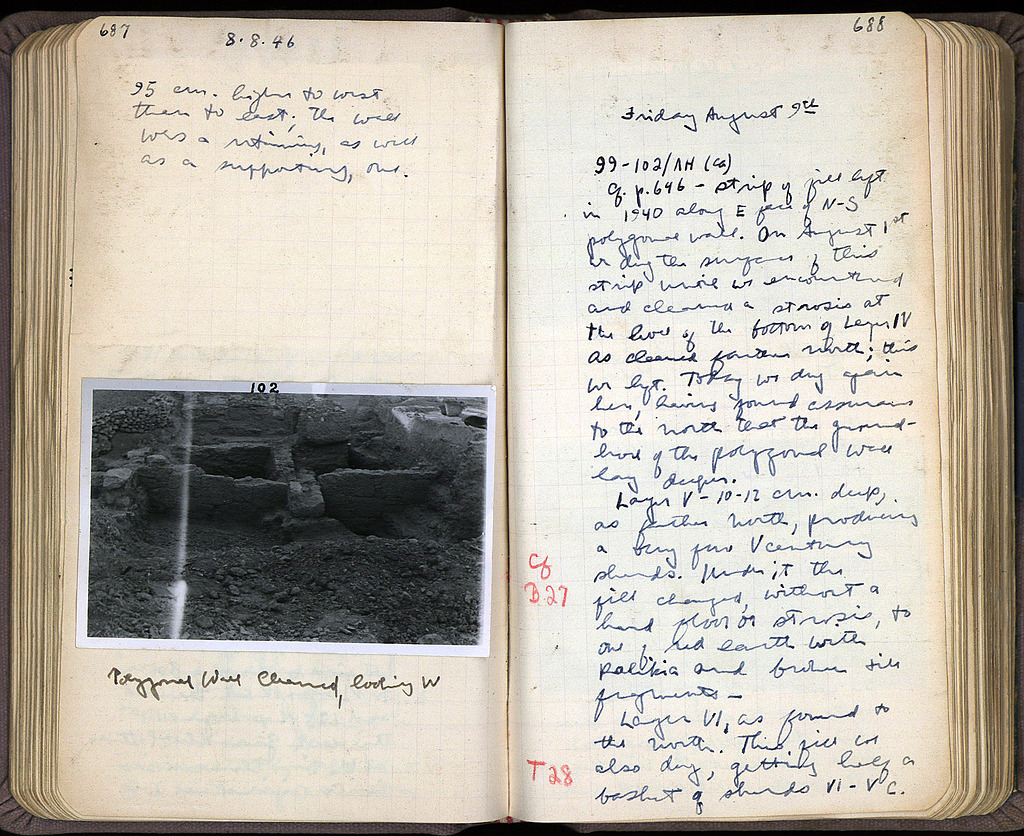 687
8.8.46
95 cm. higher to west
than to east; the wall
was a retaining, as well
as a supporting, one.
102
Polygonal Wall Cleaned, looking W
688
Friday August 9th
99-102/AH (ca)
Cf. p.646 - strip of fill left
in 1940 along E face of N-S
polygonal wall. On August 1st
we dug the surface of this
strip until we encountered
and cleaned a strosis at
the level of the bottom of Layer IV
as cleaned further north; this
we left. Today we dug again
here, having found assurance
to the north that the ground-
level of the polygonal wall
lay deeper.
Layer V - 10-12 cm. deep,
as further north, producing
a very few V century
sherds. Under it the
fill changed, without a
hard floor or strosis, to
one of red earth with
and broken
fragments -
Layer VI, as found to
the north. This fill we
also dug, getting half a
basket of sherds VI - V C.
Cf
B.27
T 28